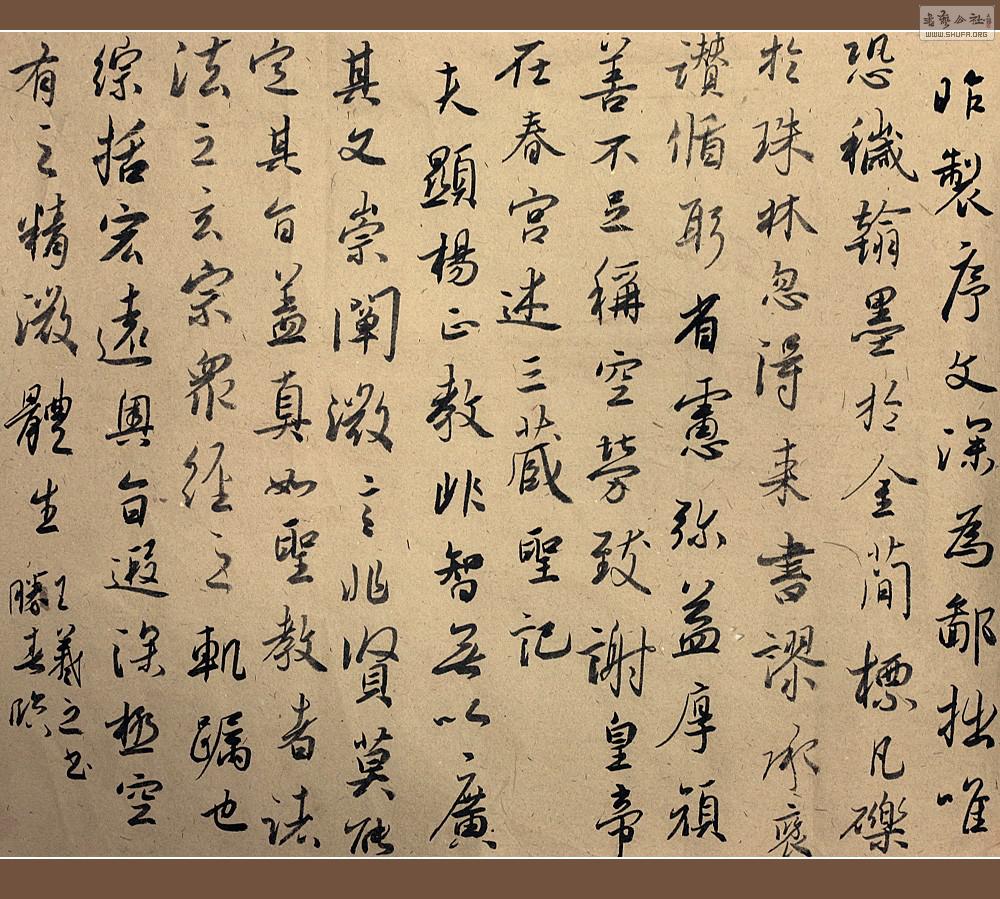 昨製序文深為鄙拙唯
恐穢翰墨於金簡標凡礫
於珠林忽得來書謬承褒
讃循躬省慮弥益厚顔
善不足稱空勞致謝皇帝
在春宮述三藏聖記
夫顯楊正教非智無以廣
其文崇闡微言非賢莫能
定其旨盖真如聖教者諸
法之玄宗衆經之軌躅也
綜括宏遠奥旨遐深極空
有之精微體生
王羲之书
勝春臨
书艺公社
WWW.SHUFA.ORG